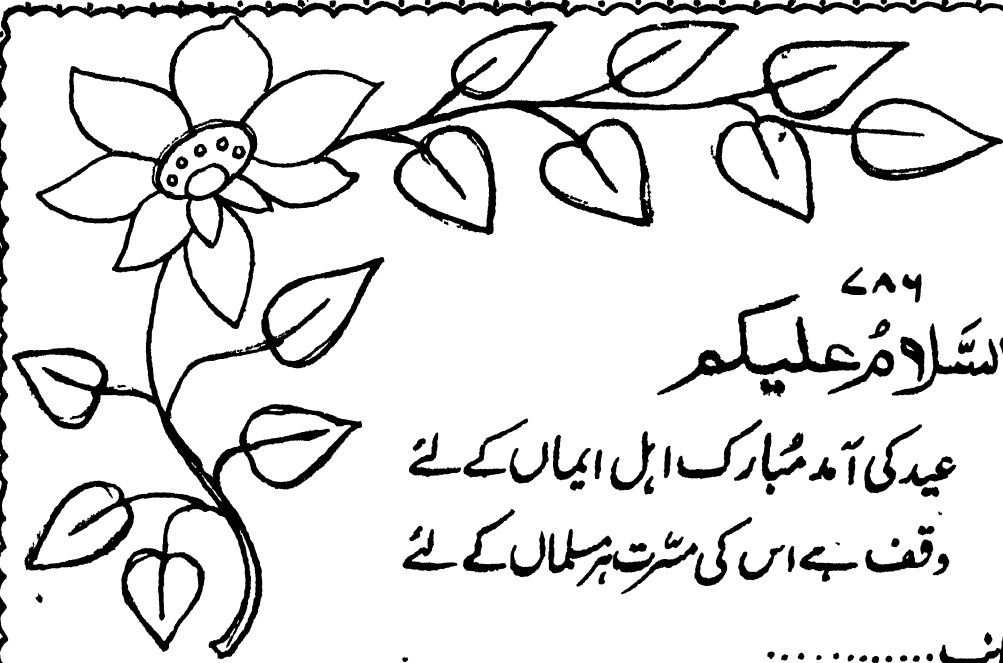 ۷۸۶
السَّلامُ علیکم
عید کی آمد مُبارک اہل ایماں کے لئے
وقف ہے اس کی مسّرت ہر مسلماں کے لئے